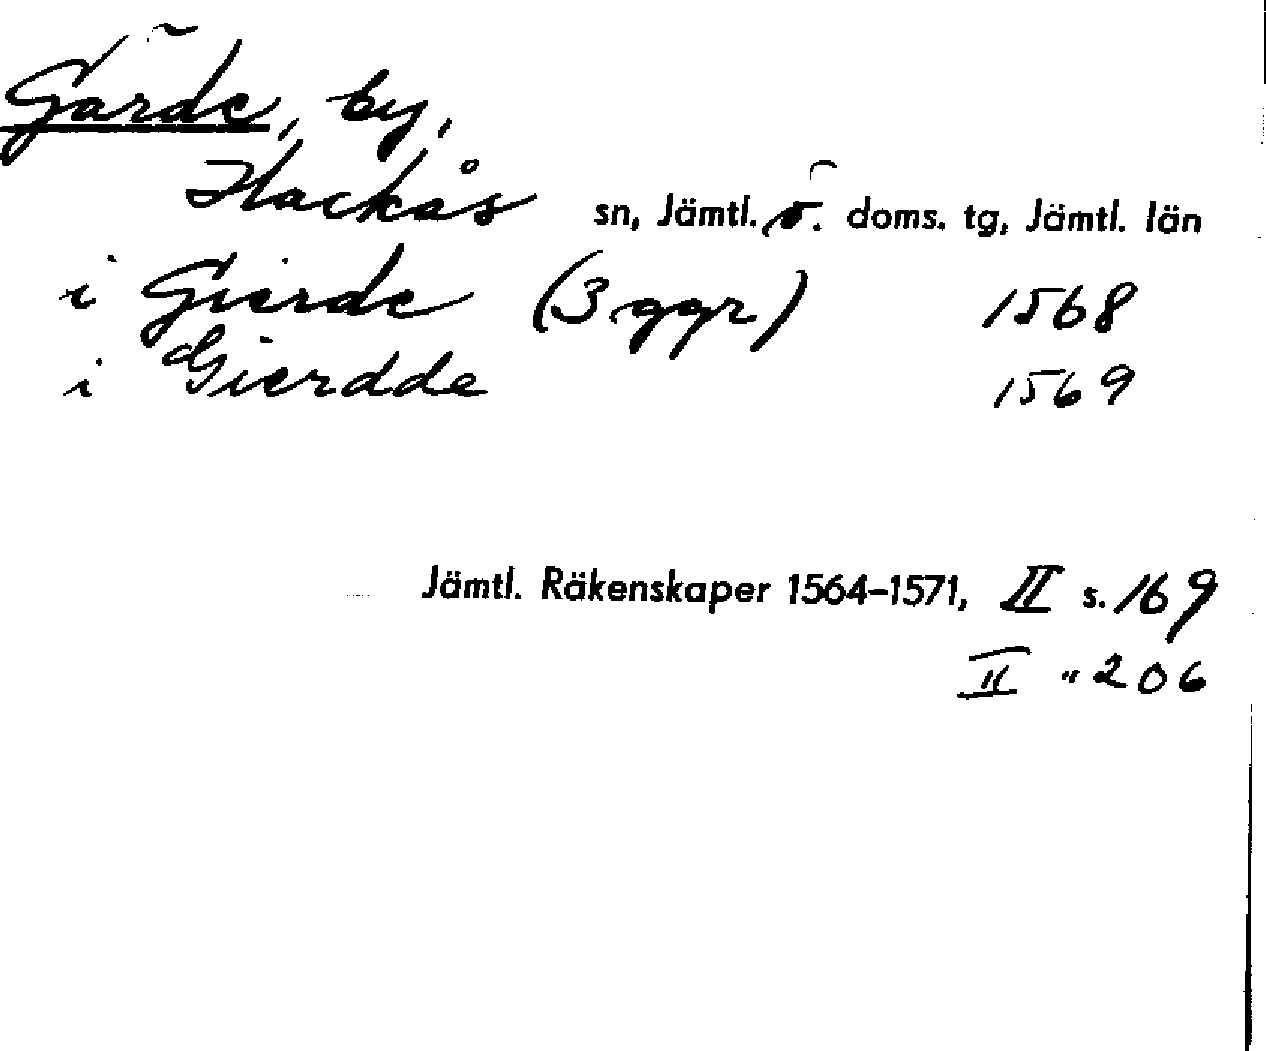 Gärde, by,
Hackås sn, Jämtl. ö. doms. tg, Jämtl. län
i Gierde (3 ggr) 1568
i Gierdde 1569
Jämtl. Räkenskaper 1564-1571, II s. 169
II " 206